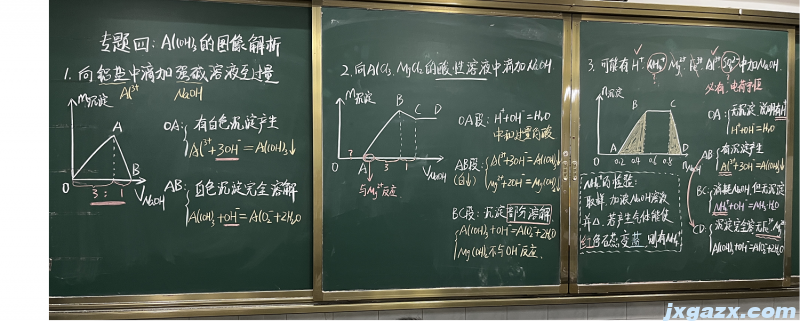 专题四: Al(OH)₃的图像解析
1. 向铝盐中滴加强碱溶液至过量
Al³⁺ NaOH
m沉淀
A
O
B
V NaOH
3 : 1
OA: 有白色沉淀产生
Al³⁺+3OH⁻=Al(OH)₃↓
AB: 白色沉淀完全溶解
Al(OH)₃+OH⁻=AlO₂⁻+2H₂O
2. 向AlCl₃、MgCl₂的酸性溶液中滴加NaOH
m沉淀
B C D
?
O A 3 1 V NaOH
与Mg²⁺反应
OA段: H⁺+OH⁻=H₂O
中和过量的酸
AB段: Al³⁺+3OH⁻=Al(OH)₃↓
(白↓) Mg²⁺+2OH⁻=Mg(OH)₂↓
BC段: 沉淀部分溶解
Al(OH)₃+OH⁻=AlO₂⁻+2H₂O
Mg(OH)₂不与OH⁻反应
3. 可能有H⁺ NH₄⁺ Mg²⁺ Fe³⁺ Al³⁺ SO₄²⁻中加NaOH
必有: 电荷守恒
m沉淀
B C
O A D
0.2 0.4 0.6 0.8
V NaOH
OA: 无沉淀 说明有H⁺
H⁺+OH⁻=H₂O
AB: 有沉淀产生
Al³⁺+3OH⁻=Al(OH)₃↓
BC: 消耗NaOH但无沉淀
NH₄⁺+OH⁻=NH₃·H₂O
CD: 沉淀完全溶 无Fe³⁺ Mg²⁺
Al(OH)₃+OH⁻=AlO₂⁻+2H₂O
NH₄⁺的检验:
取样 加浓NaOH溶液
并△. 若产生气体能使
红色石蕊变蓝, 则有NH₄⁺
jxgazx.com